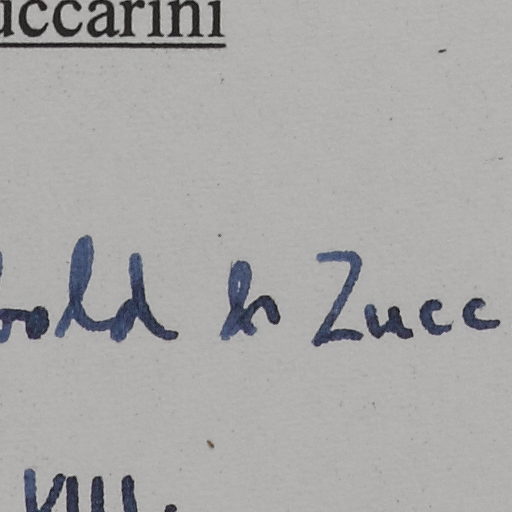 uccarini
bold & Zucc
VIII.